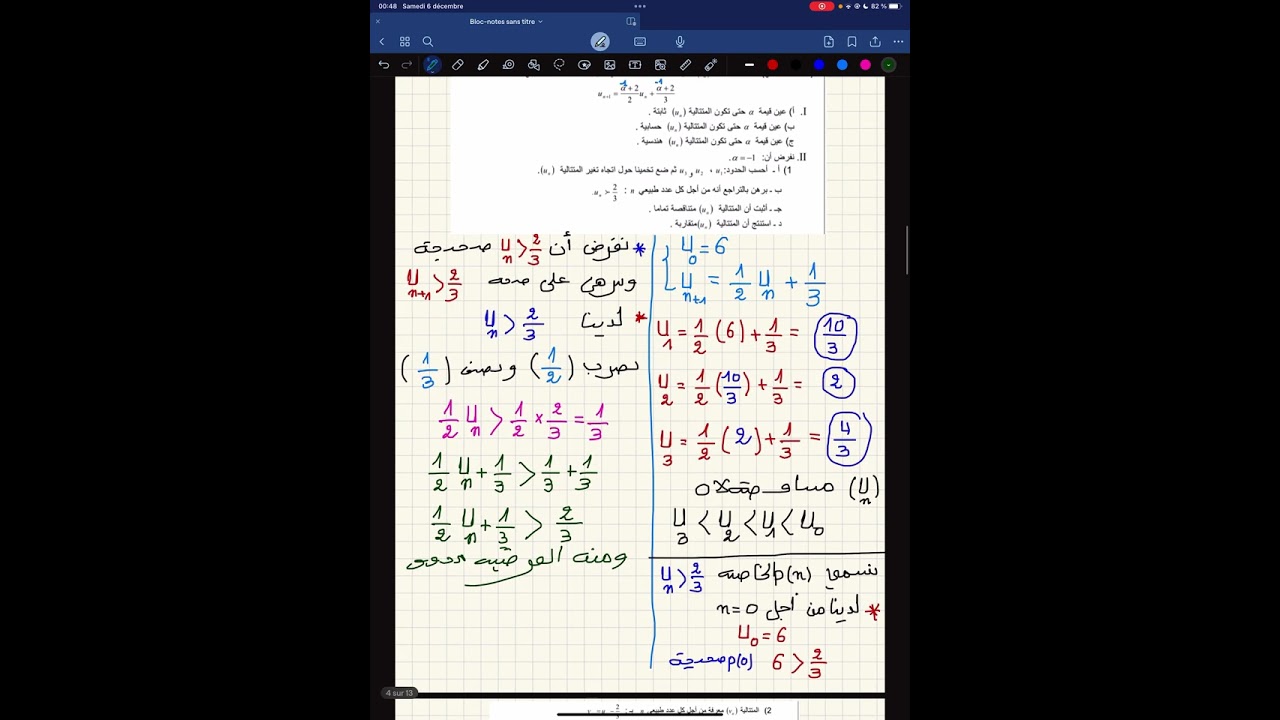 00:48 Samedi 6 décembre
82 %
Bloc-notes sans titre
u_{n+1} = \frac{α+2}{2} u_n + \frac{α+2}{3}
-1 -1
I. أ) عين قيمة α حتى تكون المتتالية (u_n) ثابتة .
ب) عين قيمة α حتى تكون المتتالية (u_n) حسابية .
ج) عين قيمة α حتى تكون المتتالية (u_n) هندسية .
II. نفرض أن: α = -1.
1) أ - أحسب الحدود: u_1 ، u_2 و u_3 ثم ضع تخمينا حول اتجاه تغير المتتالية (u_n).
ب - برهن بالتراجع أنه من أجل كل عدد طبيعي n : u_n > \frac{2}{3}.
جـ - أثبت أن المتتالية (u_n) متناقصة تماما .
د - استنتج أن المتتالية (u_n) متقاربة .
U_0 = 6
U_{n+1} = \frac{1}{2} U_n + \frac{1}{3}
U_1 = \frac{1}{2} (6) + \frac{1}{3} = \frac{10}{3}
U_2 = \frac{1}{2} (\frac{10}{3}) + \frac{1}{3} = 2
U_3 = \frac{1}{2} (2) + \frac{1}{3} = \frac{4}{3}
(U_n) متناقصة
U_3 < U_2 < U_1 < U_0
نسمي p(n) الخاصية U_n > \frac{2}{3}
* لدينا من أجل n = 0
U_0 = 6
6 > \frac{2}{3} p(0) صحيحة
* نفرض أن U_n > \frac{2}{3} صحيحة
ونبرهن على صحة U_{n+1} > \frac{2}{3}
* لدينا U_n > \frac{2}{3}
نضرب (\frac{1}{2}) ونضيف (\frac{1}{3})
\frac{1}{2} U_n > \frac{1}{2} × \frac{2}{3} = \frac{1}{3}
\frac{1}{2} U_n + \frac{1}{3} > \frac{1}{3} + \frac{1}{3}
\frac{1}{2} U_n + \frac{1}{3} > \frac{2}{3}
ومنه الفرضية
4 sur 13
2) المتتالية (v_n) معرفة من أجل كل عدد طبيعي n بـ: v_n = u_n - \frac{2}{3}